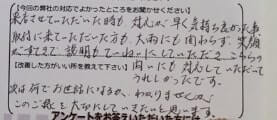 【今回の弊社の対応でよかったところをお聞かせください】
来店させていただいた時も 対応が、早く気持ち良かった事
取付に来ていただいた方も 大雨にも関わらず、笑顔
がすてきで 説明もていねいにしていただき こちらの
【改善した方がいい所を教えて下さい】
問いにも 対応していただいて
うれしかったです。
次は何でお世話になるか、わかりませんが
このご縁を大切にしていきたいと思います
アンケートをお答えいただいた方に